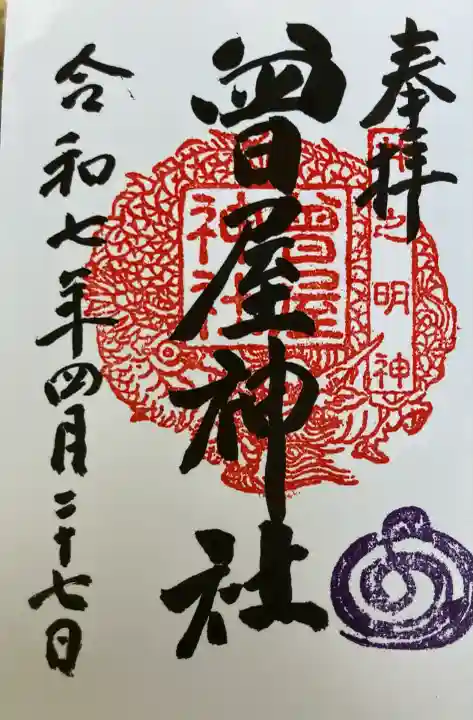 奉拝
井之明神
曾屋神社
曽屋神社
令和七年四月二十七日